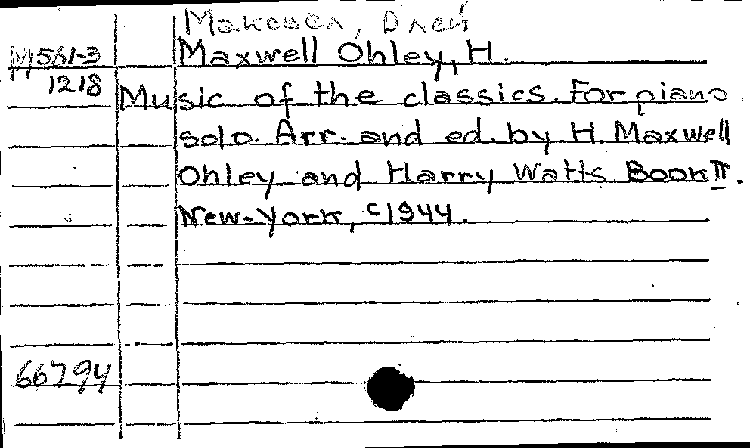 Максвел, Олей
Maxwell Ohley, H.
М561-3
1218
Music of the classics. For piano
solo. Arr. and ed. by H. Maxwell
Ohley and Harry Watts Book II.
New-York, c1944.
66794